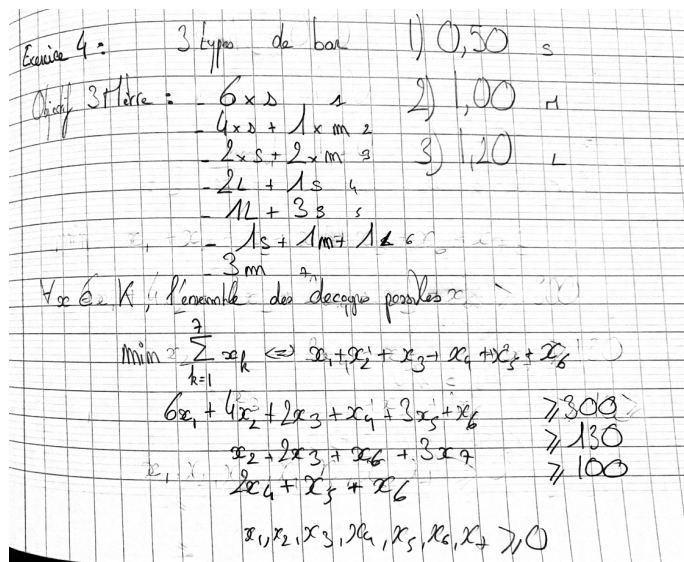 Exercice 4 : 3 types de bar 1) 0,50 s
Objectif 3 Mètre : - 6 x s 1 2) 1,00 M
- 4 x s + 1 x m 2
- 2 x s + 2 x m 3 3) 1,20 L
- 2L + 1s 4
- 1L + 3s 5
- 1s + 1m + 1L 6
- 3m 7
∀x ∈ K, l'ensemble des découpes possibles
min \sum_{k=1}^{7} x_k <=> x_1 + x_2 + x_3 + x_4 + x_5 + x_6
6x_1 + 4x_2 + 2x_3 + x_4 + 3x_5 + x_6 ≥ 300
x_2 + 2x_3 + x_6 + 3x_7 ≥ 130
2x_4 + x_5 + x_6 ≥ 100
x_1, x_2, x_3, x_4, x_5, x_6, x_7 ≥ 0